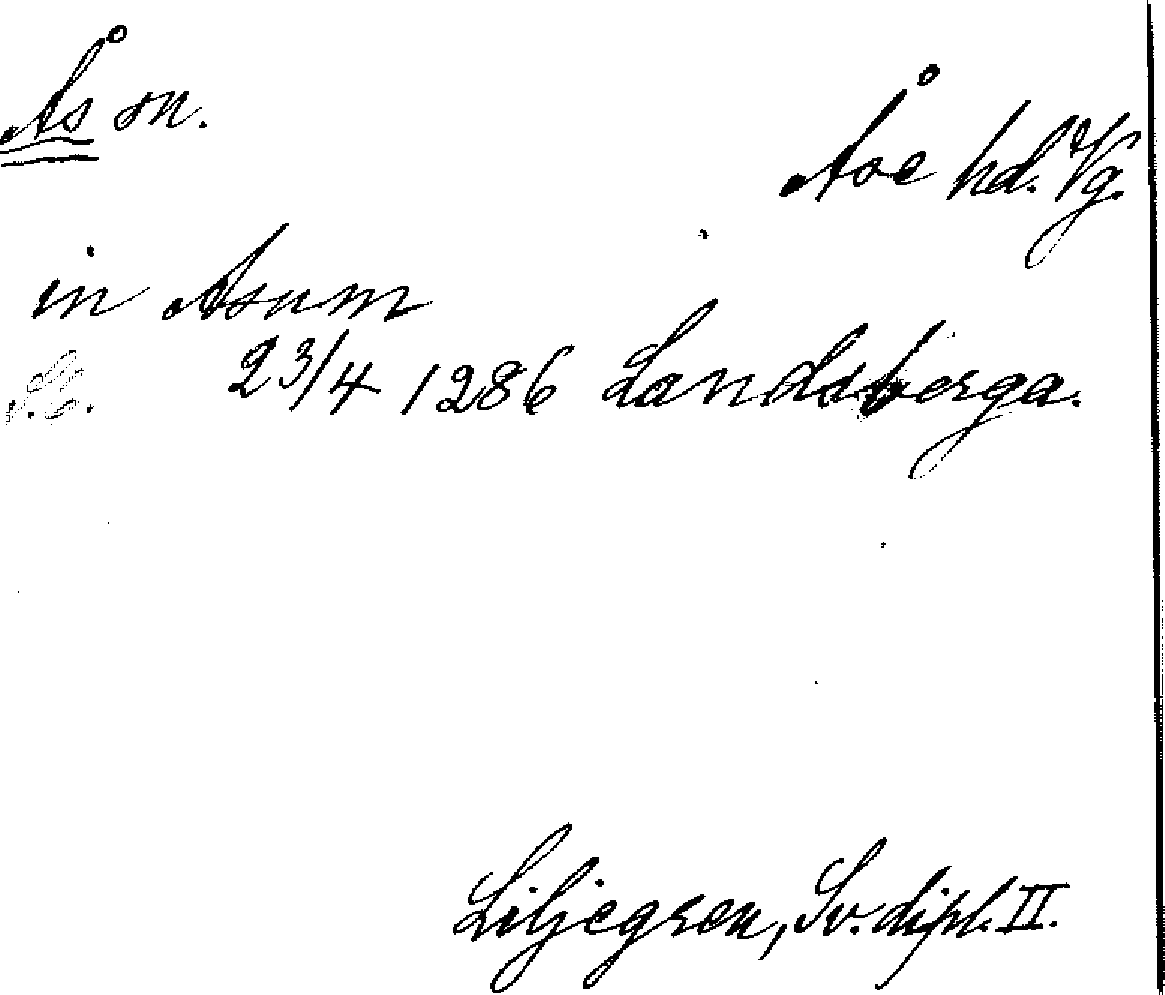 Ås sn.
Åse hd. Vg.
in Asum
23/4 1286 Landsberga.
Liljegren, Sv. dipl. II.